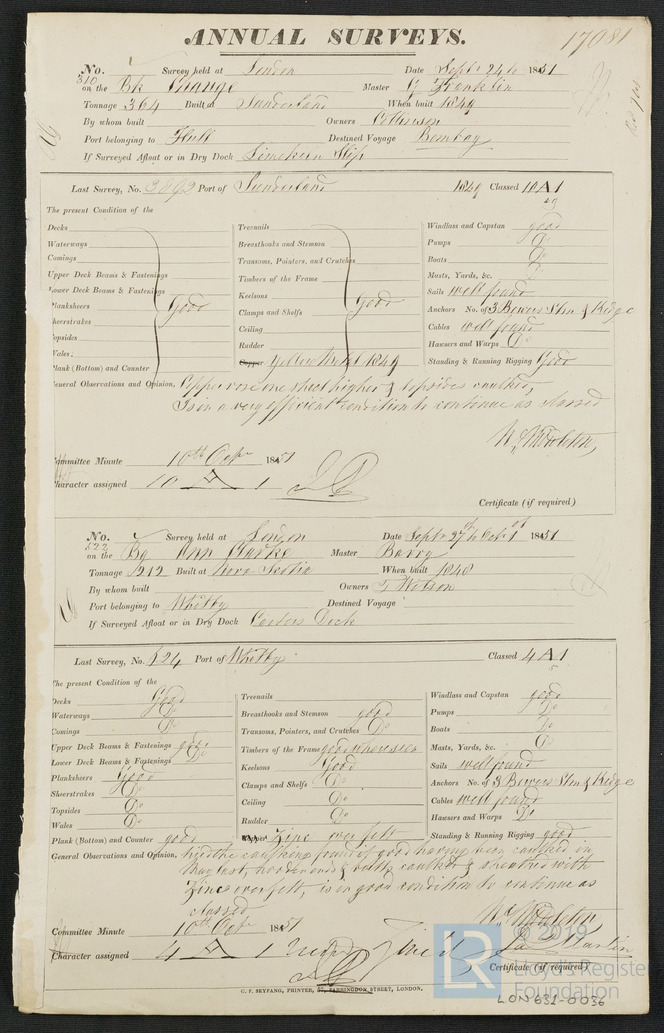 ANNUAL SURVEYS.
17081
No. 310 Survey held at London Date Septr 24th 1851
on the Bk Master Franklin
Tonnage 364 Built at Sunderland When built 1849
By whom built Owners
Port belonging to Hull Destined Voyage Bombay
If Surveyed Afloat or in Dry Dock Limekiln Slip
Last Survey, No. 3092 Port of Sunderland 1849 Classed 10 A 1
49
The present Condition of the
Decks
Waterways
Comings
Upper Deck Beams & Fastenings
Lower Deck Beams & Fastenings
Planksheers Good
Sheerstrakes
Topsides
Wales
Plank (Bottom) and Counter
Treenails
Breasthooks and Stemson
Transoms, Pointers, and Crutches
Timbers of the Frame
Keelsons
Clamps and Shelfs Good
Ceiling
Rudder
Copper Yellow Metal 1849
Windlass and Capstan good
Pumps Do
Boats Do
Masts, Yards, &c. Do
Sails well found
Anchors No. of 3 Bowers Stm & Kedge
Cables well found
Hawsers and Warps Do
Standing & Running Rigging Good
General Observations and Opinion, Copper rose one sheet higher & topsides caulked,
Is in a very efficient condition to continue as classed
Committee Minute 10th Octr 1851
Character assigned 10 A 1
Certificate (if required)
No. 522 Survey held at London Date Septr 27th to Octr 1st 1851
on the Bg Ann Clarke Master Barry
Tonnage 212 Built at Nova Scotia When built 1840
By whom built Owners T Watson
Port belonging to Whitby Destined Voyage
If Surveyed Afloat or in Dry Dock Dock
Last Survey, No. 524 Port of Whitby Classed 4 A 1
5
The present Condition of the
Decks Good
Waterways Do
Comings Do
Upper Deck Beams & Fastenings good
Lower Deck Beams & Fastenings Do
Planksheers Good
Sheerstrakes Do
Topsides Do
Wales Do
Plank (Bottom) and Counter good
Treenails
Breasthooks and Stemson good
Transoms, Pointers, and Crutches Do
Timbers of the Frame good where seen
Keelsons Good
Clamps and Shelfs Do
Ceiling Do
Rudder Do
Copper Zinc over felt
Windlass and Capstan good
Pumps Do
Boats Do
Masts, Yards, &c. Do
Sails well found
Anchors No. of 3 Bowers Stm & Kedge
Cables well found
Hawsers and Warps Do
Standing & Running Rigging good
General Observations and Opinion, the caulking found good having been caulked in
May last, hoodends & butts caulked & sheathed with
Zinc over felt, is in good condition to continue as
classed
Committee Minute 10th Octr 1851
Character assigned 4 A 1
Martin
Certificate (if required)
C. F. SEYFANG, PRINTER, FARRINGDON STREET, LONDON.
© 2019
LR
Lloyd's Register
Foundation
LON632-0036